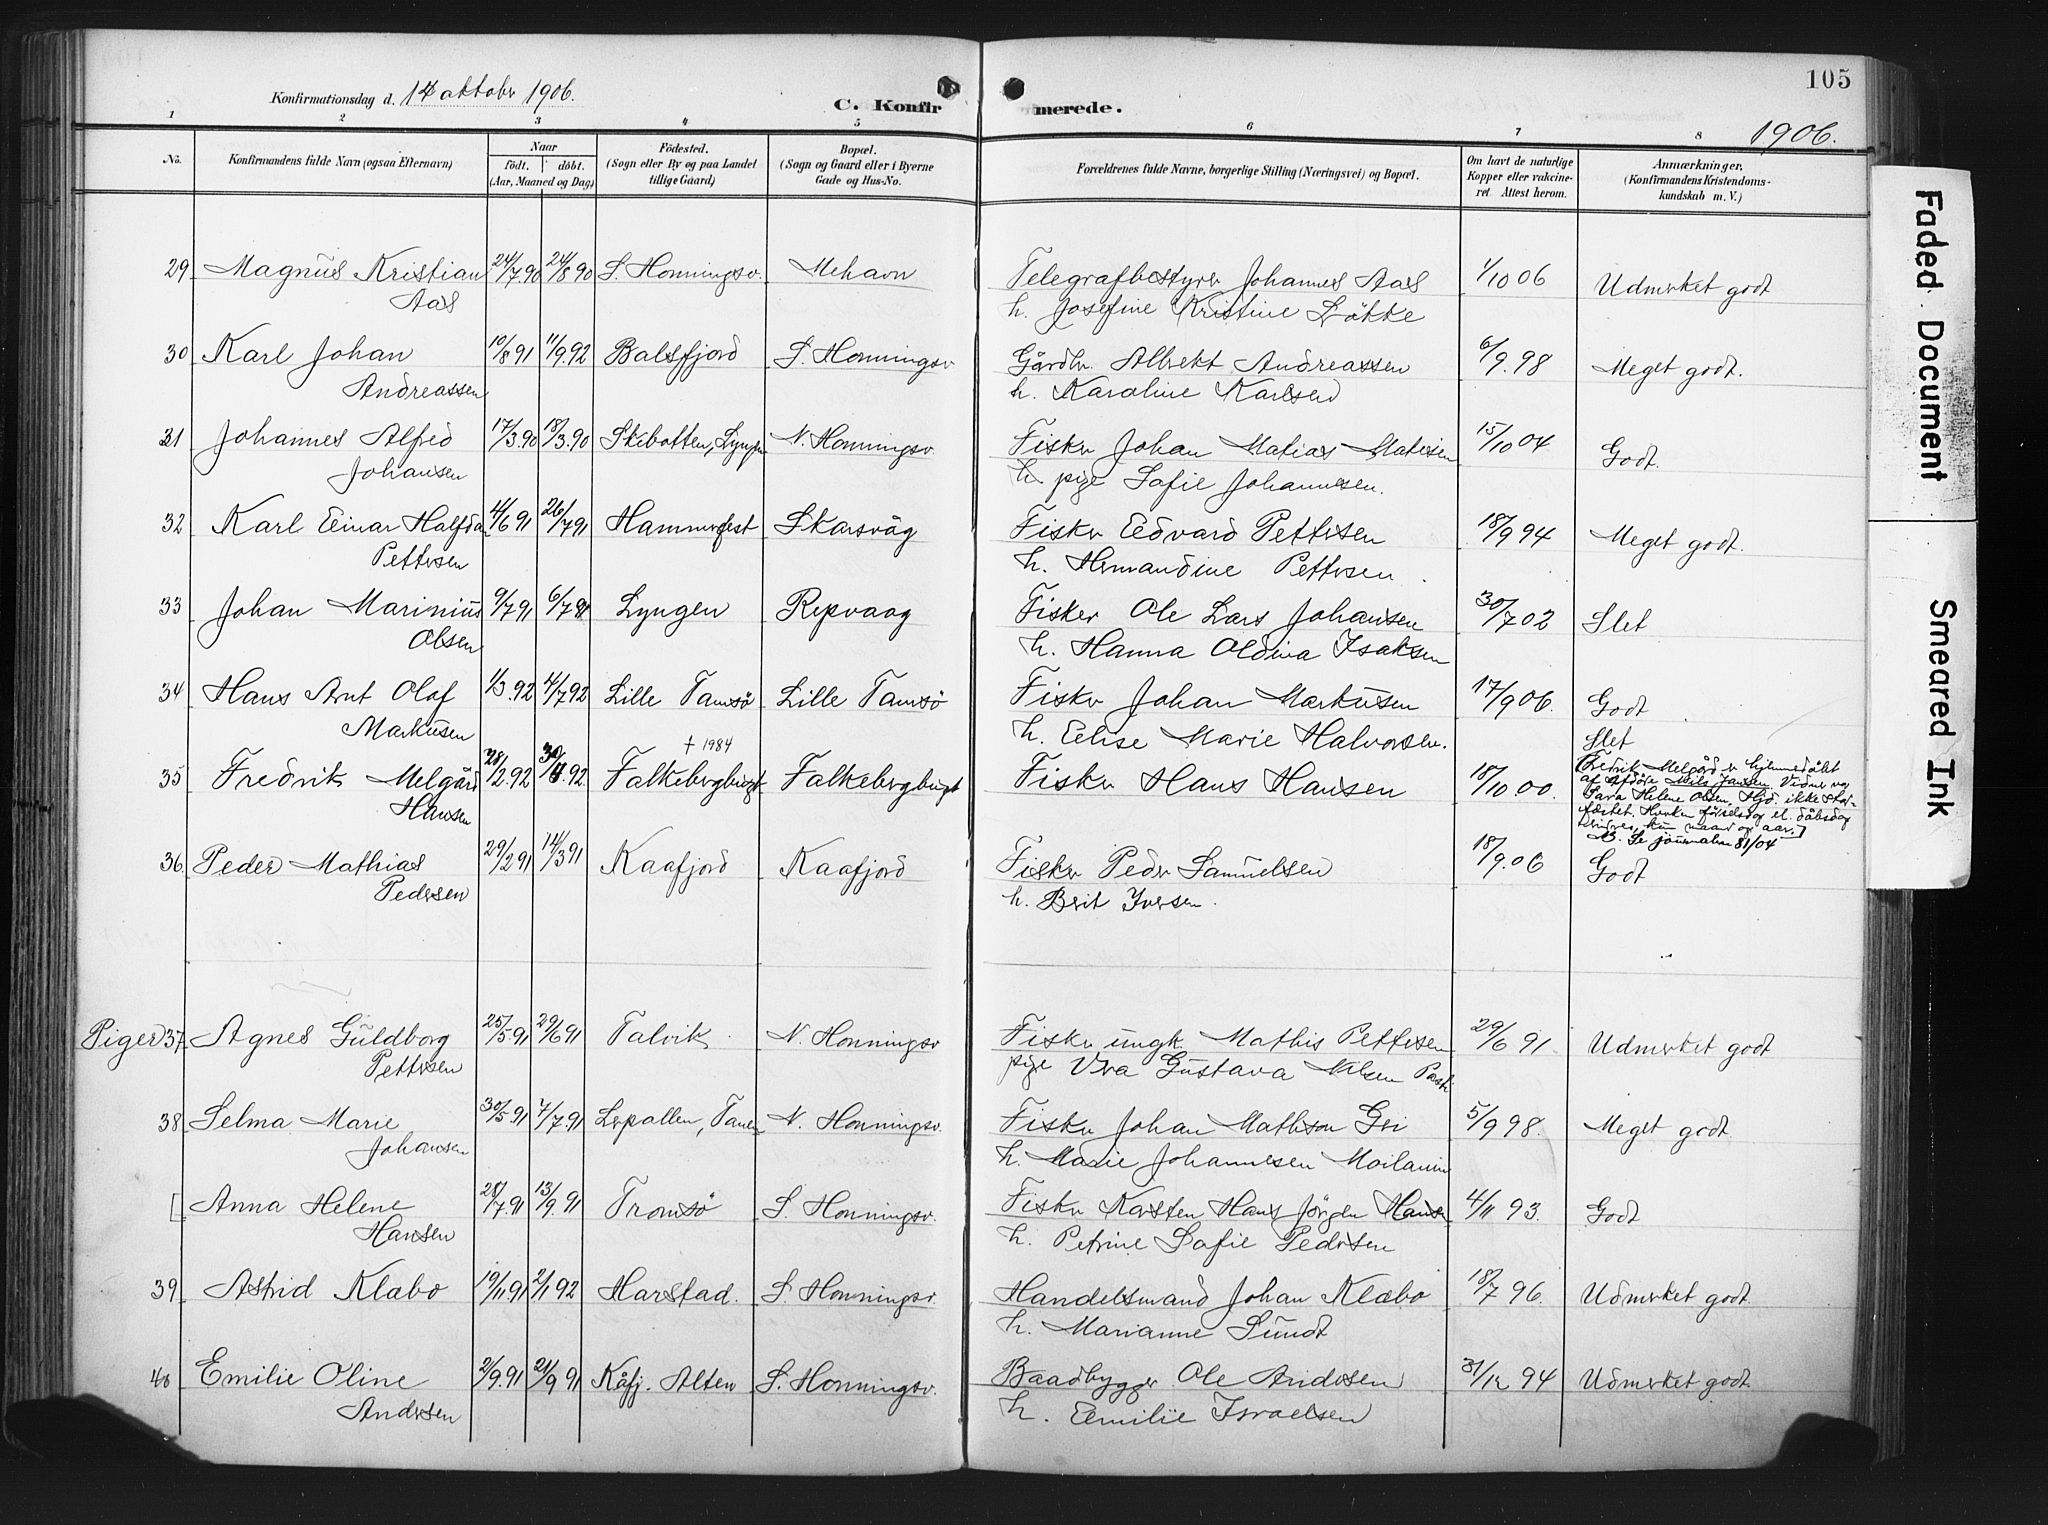 105
Konfirmationsdag d. 14 oktober 1906.
C. Konfirmerede.
1906.
1 2 3 4 5 6 7 8
No.
Konfirmandens fulde Navn (ogsaa Efternavn)
Naar
født. døbt.
(Aar, Maaned og Dag)
Fødested.
(Sogn eller By og paa Landet
tillige Gaard)
Bopæl.
(Sogn og Gaard eller i Byerne
Gade og Hus-No.
Forældrenes fulde Navne, borgerlige Stilling (Næringsvei) og Bopæl.
Om havt de naturlige
Kopper eller vakcine-
ret. Attest herom.
Anmærkninger,
(Konfirmandens Kristendoms-
kundskab m. V.)
29 Magnus Kristian 24/7.90 24/8 90 S. Honningsv. Mehavn Telegrafbestyrer Johannes Aas 1/10 06 Udmerket godt
Aas h. Josefine Kristine Løkke
30 Karl Johan 10/8 91 11/9.92 Balsfjord S. Honningsv Gårdbr. Albrekt Andreassen 6/9.98 Meget godt.
Andreassen h. Karoline Karlsen
31 Johannes Alfred 17/3.90 18/3.90 Skibotten, Lyngen N. Honningsv. Fisker Johan Matias Matisen 15/10 04 Godt.
Johansen h. pige Sofie Johannesen.
32 Karl Einar Halfdan 4/6 91 26/7 91 Hammerfest Skarsvåg Fisker Edvard Pettersen 18/9 94 Meget godt.
Pettersen h. Hermandine Pettersen.
33 Johan Marinius 9/7 91 6/7 91 Lyngen Repvaag Fisker Ole Lars Johansen 30/7 02 Slet
Olsen h. Hanna Oldina Isaksen
34 Hans Arnt Olaf 1/3.92 4/7 92 Lille Tamsø Lille Tamsø Fisker Johan Markusen 17/9 06. Godt
Markusen h. Elise Marie Halvorsen.
† 1984
Slet
35 Fredrik Melgård 28/2.92 92. Falkebergbugt Falkebergbugt Fisker Hans Hansen 18/10.00.
Hansen
(Fredrik Melgård er hjemmedøbt
af afdøde Nils Jansen. Vidner var
Sara Helene Olsen. Hjd. ikke stad-
fæstet. Hverken fødselsdag el. dåbsdag
kun maaned og aar.]
NB. Se journalen 81/04
36 Peder Mathias 29/2 91 14/3 91 Kaafjord Kaafjord Fisker Peder Samuelsen 18/9.06 Godt
Pedersen h. Berit Iversen.
Piger 37 Agnes Guldborg 25/5.91 29/6 91 Talvik N. Honningsv Fisker ungk. Mathis Pettersen 29/6 91 Udmerket godt
Pettersen pige Vra Gustava Nilsen
38 Selma Marie 30/5.91 7/7.91 Lerpollen, Tanen N. Honningsv. Fisker Johan Mathison Gri 5/9 98. Meget godt
Johansen h. Marie Johannesen Moilanin
[ Anna Helene 28/7.91 13/9.91 Tromsø S. Honningsv. Fisker Karsten Hans Jørgen Hansen 4/11 93. Godt
Hansen h. Petrine Sofie Pedersen
39 Astrid Klæbo 19/11 91 2/1 92 Harstad. S. Honningsv. Handelsmand Johan Klæbo 18/7 96. Udmerket godt
h. Marianne Sundt
40 Emilie Oline 2/9.91 21/9 91 Kåfj. Alten S. Honningsv. Baadbygger Ole Andersen 31/12 94 Udmerket godt
Andersen h. Emilie Israelsen
Faded Document
Smeared Ink